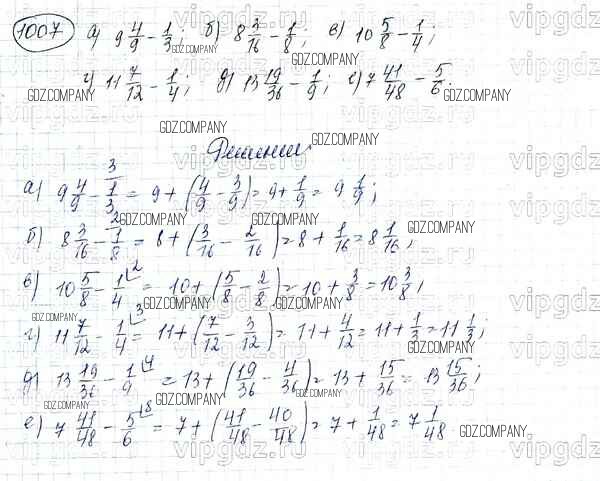 1007 а) 9 4/9 − 1/3; б) 8 3/16 − 1/8; в) 10 5/8 − 1/4;
г) 11 7/12 − 1/4; д) 13 19/36 − 1/9; е) 7 41/48 − 5/6.
Решение.
а) 9 4/9 − 1/3 (3) = 9 + (4/9 − 3/9) = 9 + 1/9 = 9 1/9;
б) 8 3/16 − 1/8 (2) = 8 + (3/16 − 2/16) = 8 + 1/16 = 8 1/16;
в) 10 5/8 − 1/4 (2) = 10 + (5/8 − 2/8) = 10 + 3/8 = 10 3/8;
г) 11 7/12 − 1/4 (3) = 11 + (7/12 − 3/12) = 11 + 4/12 = 11 + 1/3 = 11 1/3;
д) 13 19/36 − 1/9 (4) = 13 + (19/36 − 4/36) = 13 + 15/36 = 13 15/36;
е) 7 41/48 − 5/6 (8) = 7 + (41/48 − 40/48) = 7 + 1/48 = 7 1/48
GDZ.COMPANY
vipgdz